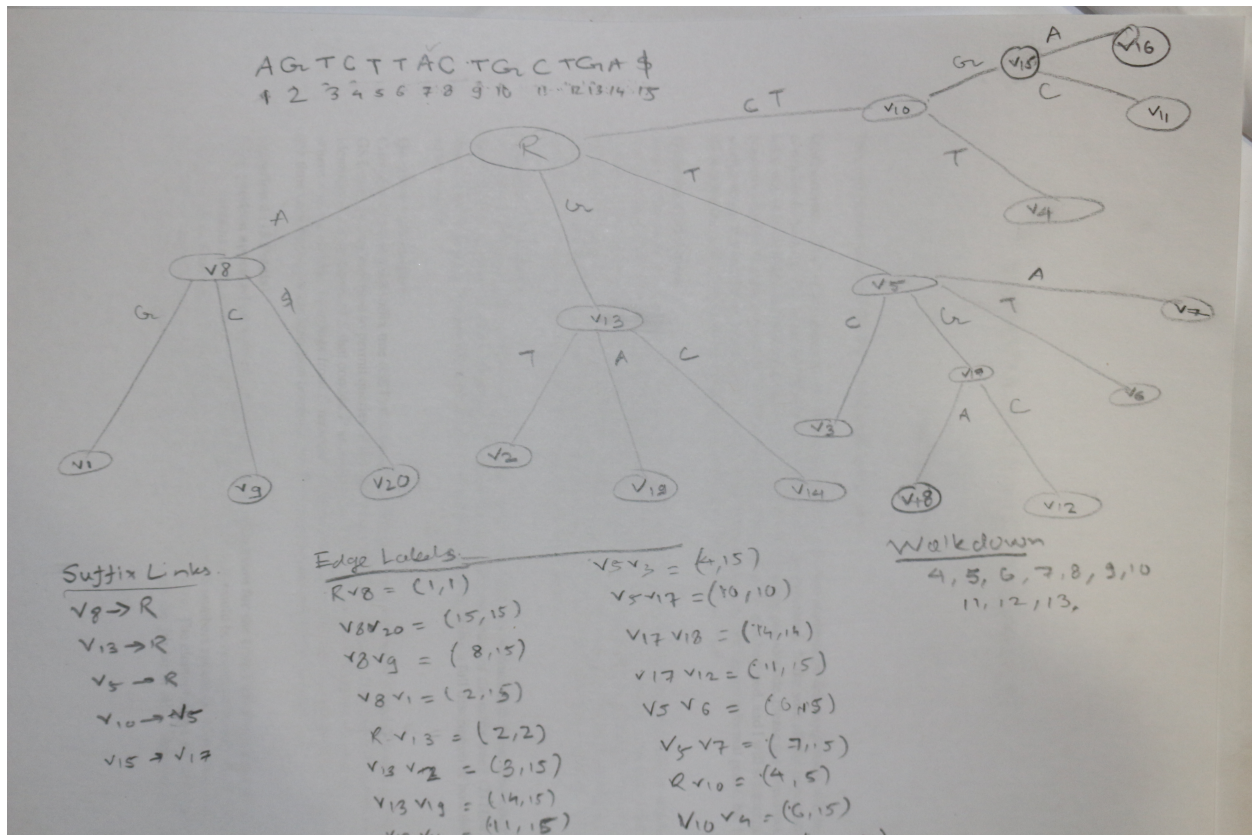 A G T C T T A C T G C T G A $
1 2 3 4 5 6 7 8 9 10 11 12 13 14 15
R
A
G
T
C T
v8
G
C
$
v1
v9
v20
v13
T
A
C
v2
v19
v14
v5
C
G
T
A
v3
v17
v6
v7
A
C
v18
v12
v10
G
T
v15
v4
A
C
v16
v11
Suffix Links.
v8 → R
v13 → R
v5 → R
v10 → v5
v15 → v17
Edge Labels.
Rv8 = (1,1)
v8v20 = (15,15)
v8v9 = (8,15)
v8v1 = (2,15)
Rv13 = (2,2)
v13v2 = (3,15)
v13v19 = (14,15)
(11,15)
v5v3 = (4,15)
v5v17 = (10,10)
v17v18 = (14,14)
v17v12 = (11,15)
v5v6 = (6,15)
v5v7 = (7,15)
Rv10 = (4,5)
v10v4 = (6,15)
Walkdown
4, 5, 6, 7, 8, 9, 10
11, 12, 13.